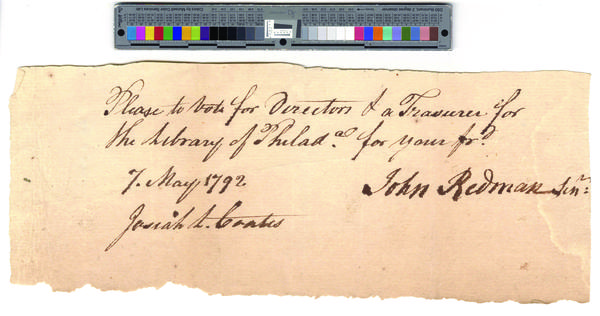 Please to Vote for Directors & a Treasurer for
the Library of Philad.ª for your fr.ᵈ
7. May 1792
John Redman Senʳ:
Josiah L. Coates